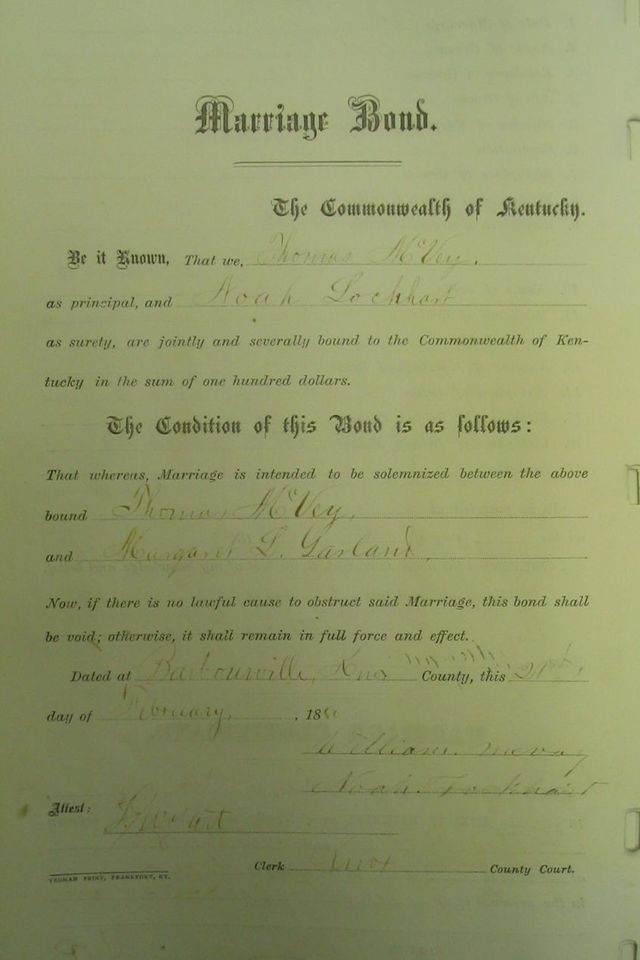 Marriage Bond.
The Commonwealth of Kentucky.
Be it Known, That we, Thomas McVey.
as principal, and Noah Lockhart
as surety, are jointly and severally bound to the Commonwealth of Ken-
tucky in the sum of one hundred dollars.
The Condition of this Bond is as follows:
That whereas, Marriage is intended to be solemnized between the above
bound Thomas McVey,
and Margaret L. Garland,
Now, if there is no lawful cause to obstruct said Marriage, this bond shall
be void; otherwise, it shall remain in full force and effect.
Dated at Barbourville, Knox County, this
day of February, , 18
William
Noah Lockhart
Attest:
Clerk Knox County Court.
YEOMAN PRINT, FRANKFORT, KY.